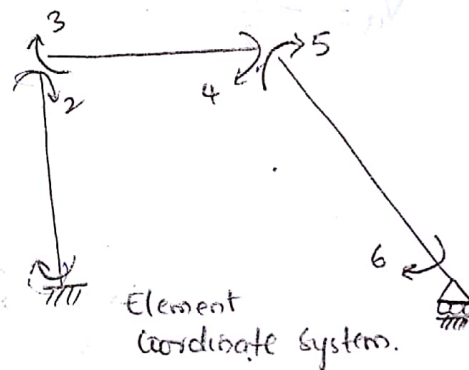 3
5
2
4
6
Element
Coordinate System.